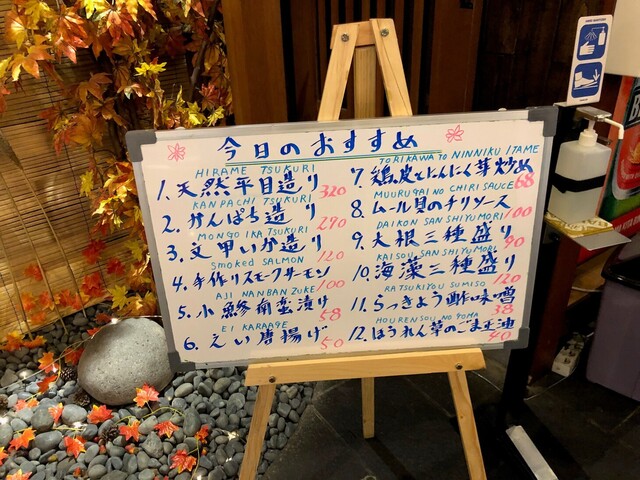 今日のおすすめ
HIRAME TSUKURI
1. 天然平目造り 320
KANPACHI TSUKURI
2. かんぱち造り 290
MONGO IKA TSUKURI
3. 文甲いか造り 120
SMOKED SALMON
4. 手作りスモークサーモン 100
AJI NANBAN ZUKE
5. 小鯵南蛮漬け 58
EI KARAAGE
6. えい唐揚げ 50
TORIKAWA TO NINNIKU ITAME
7. 鶏皮とにんにく芽炒め 68
MUURUGAI NO CHIRI SAUCE
8. ムール貝のチリソース 100
DAIKON SAN SHIYUMORI
9. 大根三種盛り 90
KAISOU SAN SHIYUMORI
10. 海藻三種盛り 120
RATSUKIYOU SUMISO
11. らっきょう酢味噌 38
HOURENSOU NO GOMA
12. ほうれん草のごま 40